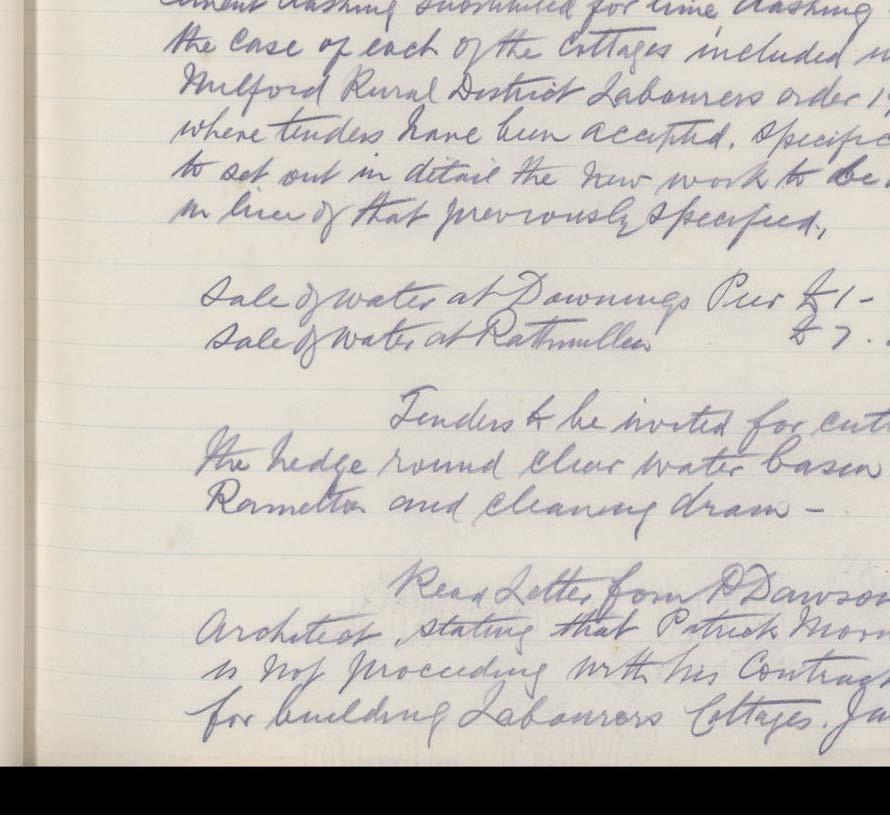 cement dashing substituted for lime dashing
the case of each of the Cottages included
Milford Rural District Labourers order 1
where tenders have been accepted. Specific
to set out in detail the new work to be
in lieu of that previously specified.,
Sale of water at Downings Pier £1-
Sale of water at Rathmullen £7.
Tenders to be invited for cutt
the hedge round clear water basin
Ramelton and cleaning drain -
Read Letter from P Dawson
Architect, stating that Patrick
is not proceeding with his Contract
for building Labourers Cottages.